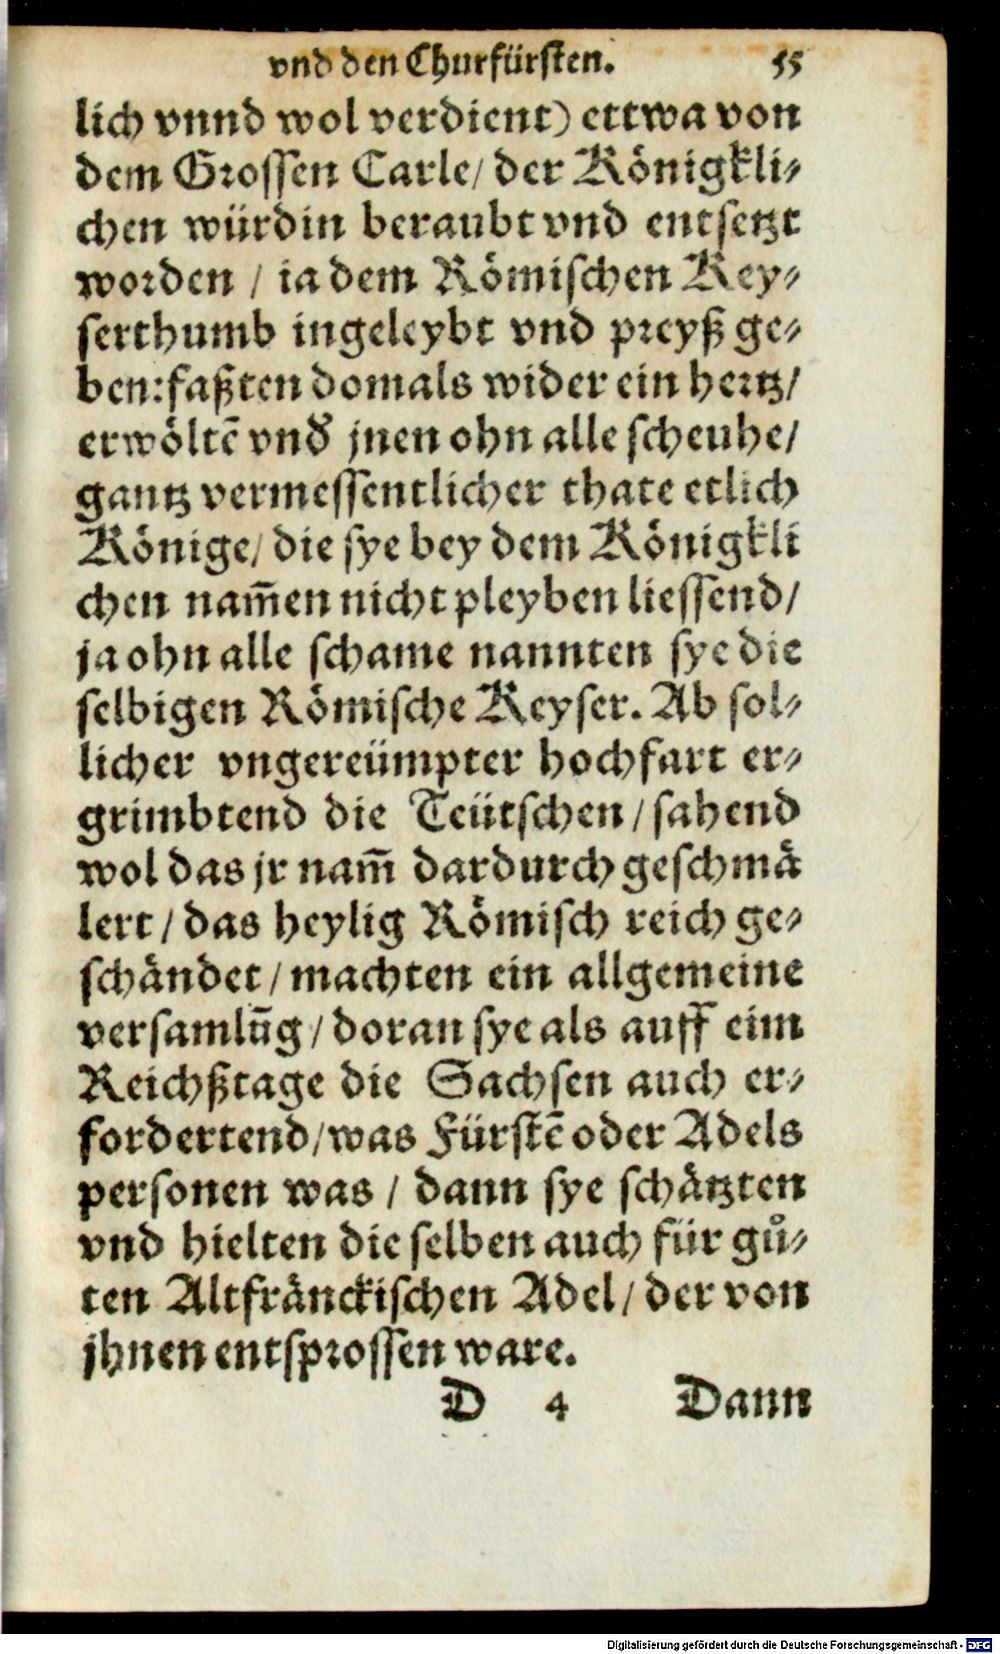 vnd den Churfürsten. 55
lich vnnd wol verdient) ettwa von
dem Grossen Carle/ der Königkli⸗
chen würdin beraubt vnd entsetzt
worden / ia dem Römischen Key⸗
serthumb ingeleybt vnd preyß ge⸗
ben: faßten domals wider ein hertz/
erwöltẽ vnd̕ jnen ohn alle scheuhe/
gantz vermessentlicher thate etlich
Könige/ die sye bey dem Königkli
chen nam̃en nicht pleyben liessend/
ja ohn alle schame nannten sye die
selbigen Römische Keyser. Ab sol⸗
licher vngereümpter hochfart er⸗
grimbtend die Teütschen / sahend
wol das jr nam̃ dardurch geschmä
lert / das heylig Römisch reich ge⸗
schändet / machten ein allgemeine
versamlũg / doran sye als auff eim
Reichßtage die Sachsen auch er⸗
fordertend/ was Fürstẽ oder Adels
personen was / dann sye schätzten
vnd hielten die selben auch für gů⸗
ten Altfränckischen Adel / der von
jhnen entsprossen ware.
D 4 Dann
Digitalisierung gefördert durch die Deutsche Forschungsgemeinschaft - DFG